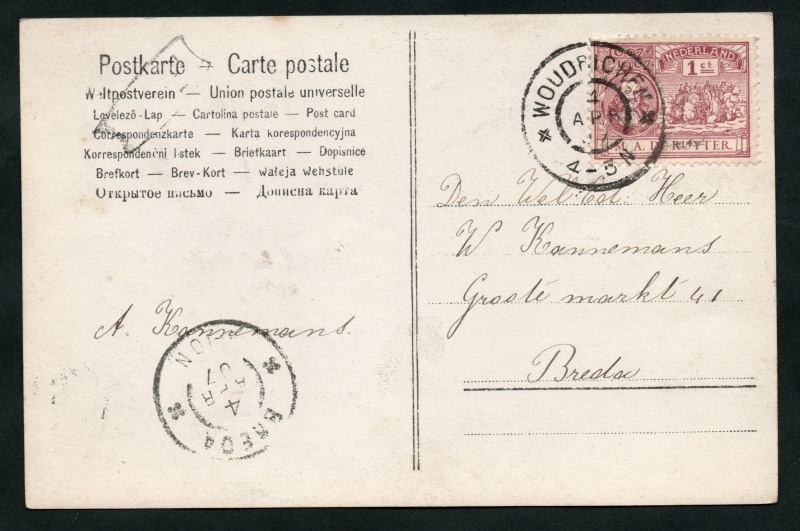 Postkarte — Carte postale
Weltpostverein — Union postale universelle
Levelező-Lap — Cartolina postale — Post card
Correspondenzkarte — Karta korespondencyjna
Korrespondenční lístek — Briefkaart — Dopisnice
Brefkort — Brev-Kort — waleja wehstule
Открытое письмо — Дописна карта
NEDERLAND
1ct
M. A. DE RUYTER.
WOUDRICHEM
APR
4-5N
Den Wel.Ed. Heer
W Kannemans
Groote markt 41
Breda
A. Kannemans.
BREDA
4